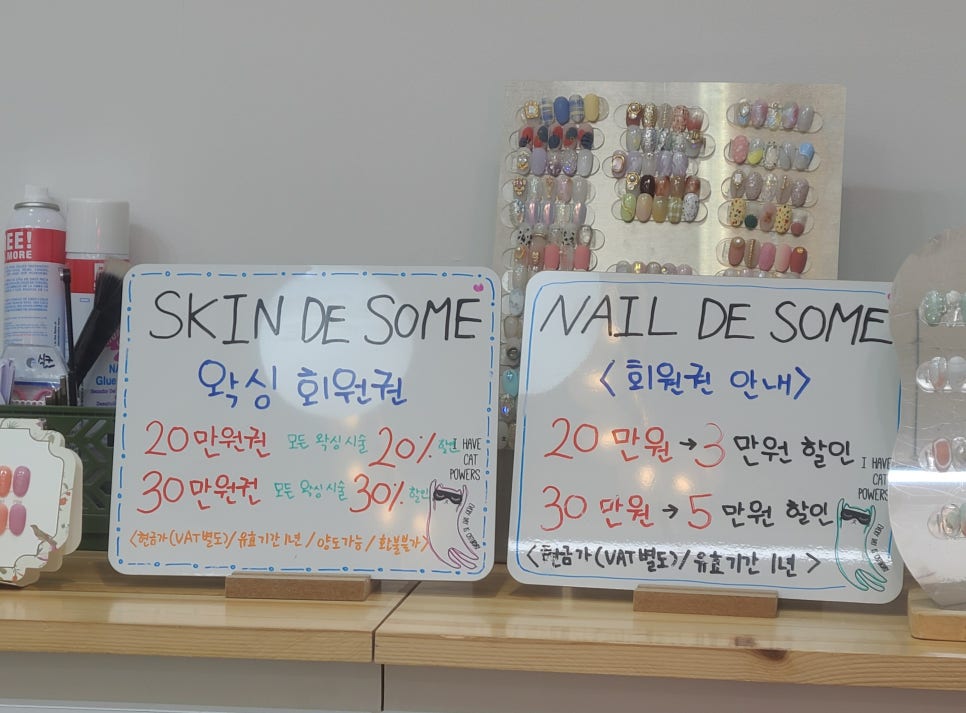 EE!
MORE
SKIN DE SOME
왁싱 회원권
20만원권 모든 왁싱시술 20% 할인
30만원권 모든 왁싱시술 30% 할인
I HAVE
CAT
POWERS
<현금가(VAT별도)/유효기간1년/양도가능/환불불가>
NAIL DE SOME
<회원권 안내>
20만원→3만원 할인
30만원→5만원 할인
I HAVE
CAT
POWERS
<현금가(VAT별도)/유효기간1년>